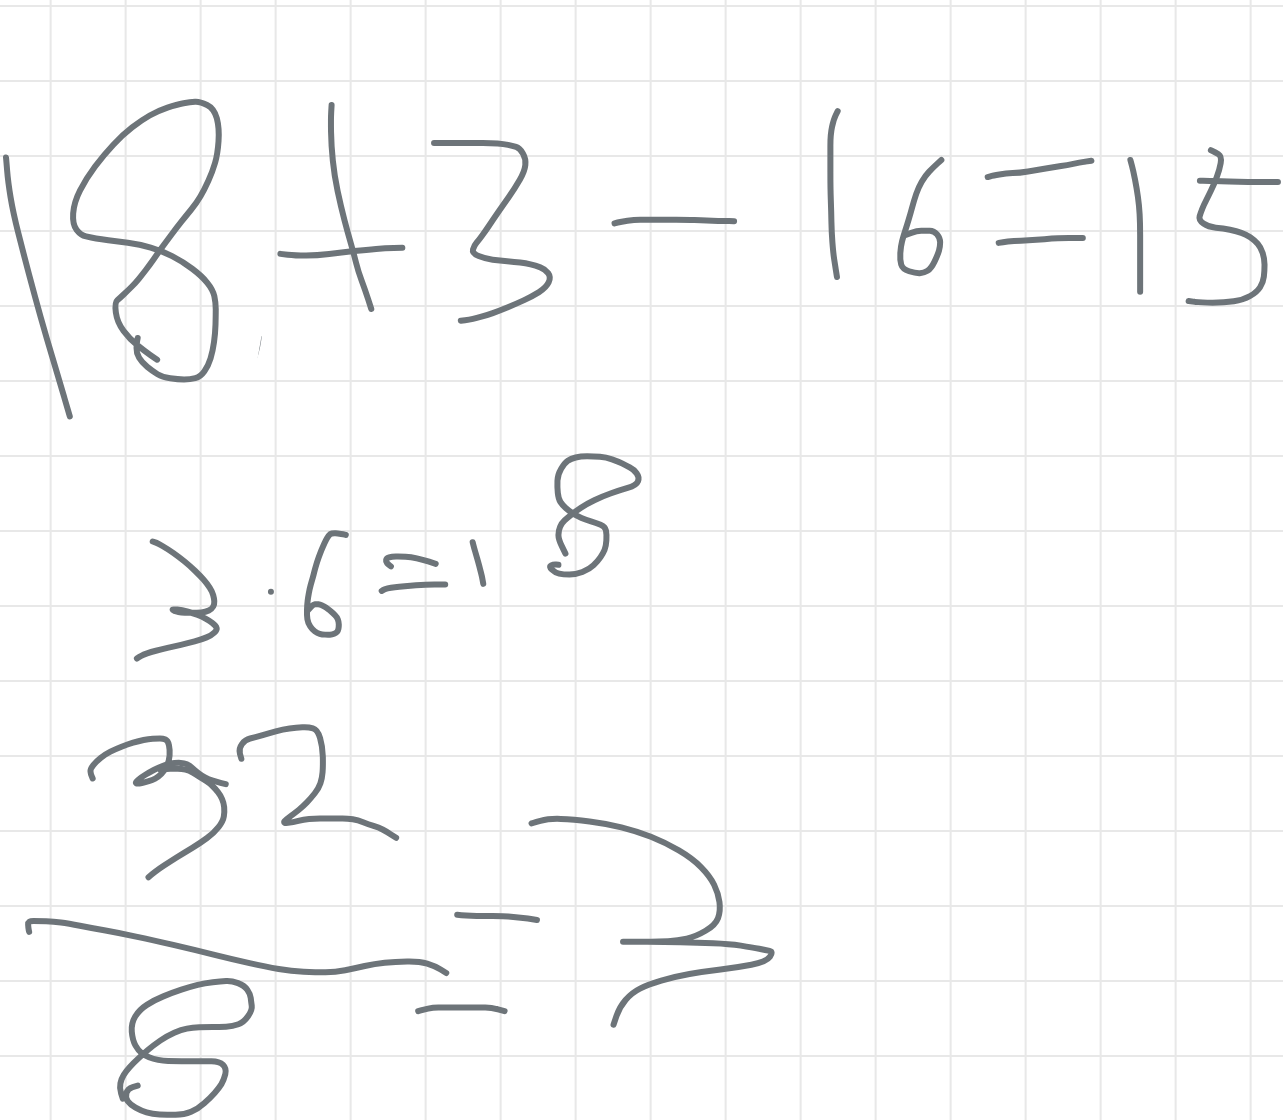 18+3-16=15
3·6=18
32/8=3